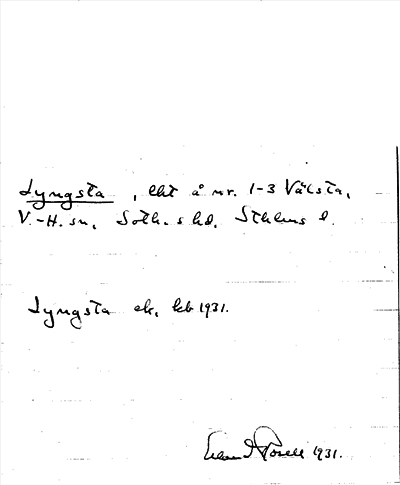 Lyngsta, lht å nr. 1-3 Valsta,
V.-H. sn, Soth. s hd, Sthlms l.
Lyngsta ek, kb 1931.
1931.